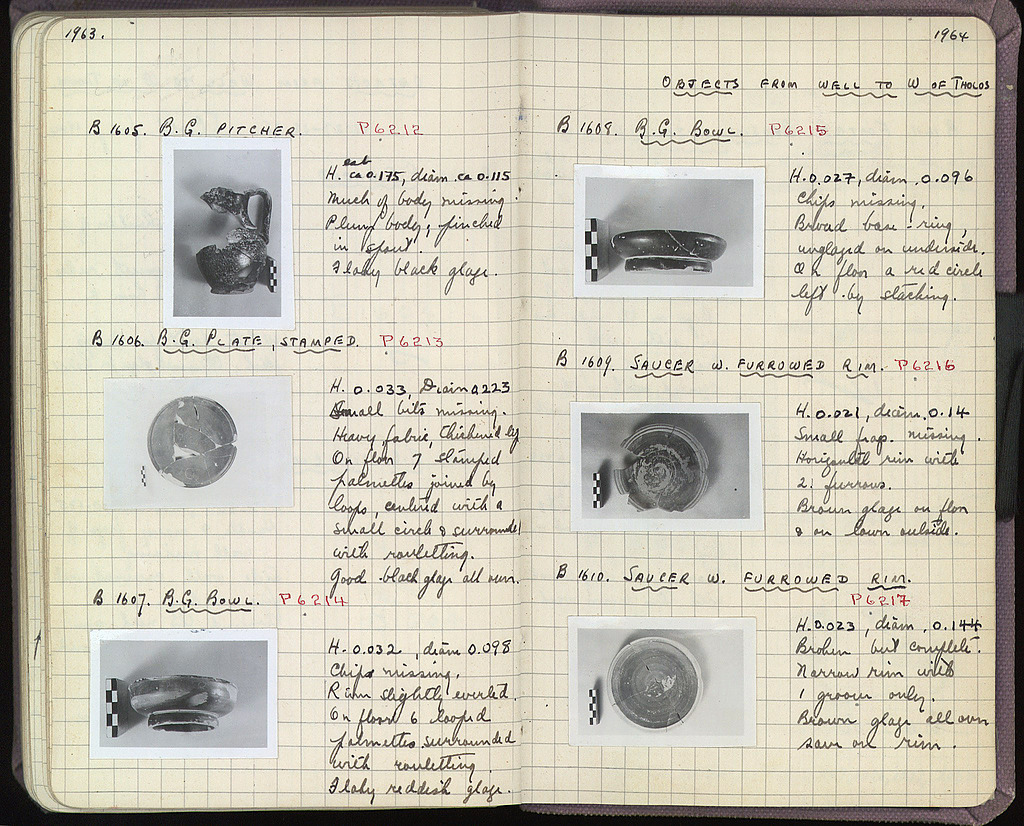 1963.
B 1605. B.G. PITCHER. P6212
est
H. ca 0.175, diam. ca 0.115
Much of body missing.
Plump body; pinched
in spout
Flaky black glaze.
B 1606. B.G. PLATE, STAMPED. P6213
H. 0.033, Diam 0.223
Small bits missing.
Heavy fabric, thickened lip
On floor 7 stamped
palmettes joined by
loops, centered with a
small circle & surrounded
with rouletting.
Good black glaze all over.
B 1607. B.G. BOWL. P6214
H. 0.032, diam 0.098
Chips missing.
Rim slightly everted.
On floor 6 looped
palmettes surrounded
with rouletting.
Flaky reddish glaze.
1964
OBJECTS FROM WELL TO W OF THOLOS
B 1608. B.G. BOWL. P6215
H. 0.027, diam. 0.096
Chips missing.
Broad base-ring,
unglazed on underside.
On floor a red circle
left by stacking.
B 1609. SAUCER W. FURROWED RIM. P6216
H. 0.021, diam. 0.14
Small frag. missing.
Horizontal rim with
2 furrows.
Brown glaze on floor
& on lower outside.
B 1610. SAUCER W. FURROWED RIM.
P6217
H. 0.023, diam. 0.144
Broken but complete.
Narrow rim with
1 groove only.
Brown glaze all over
save on rim.